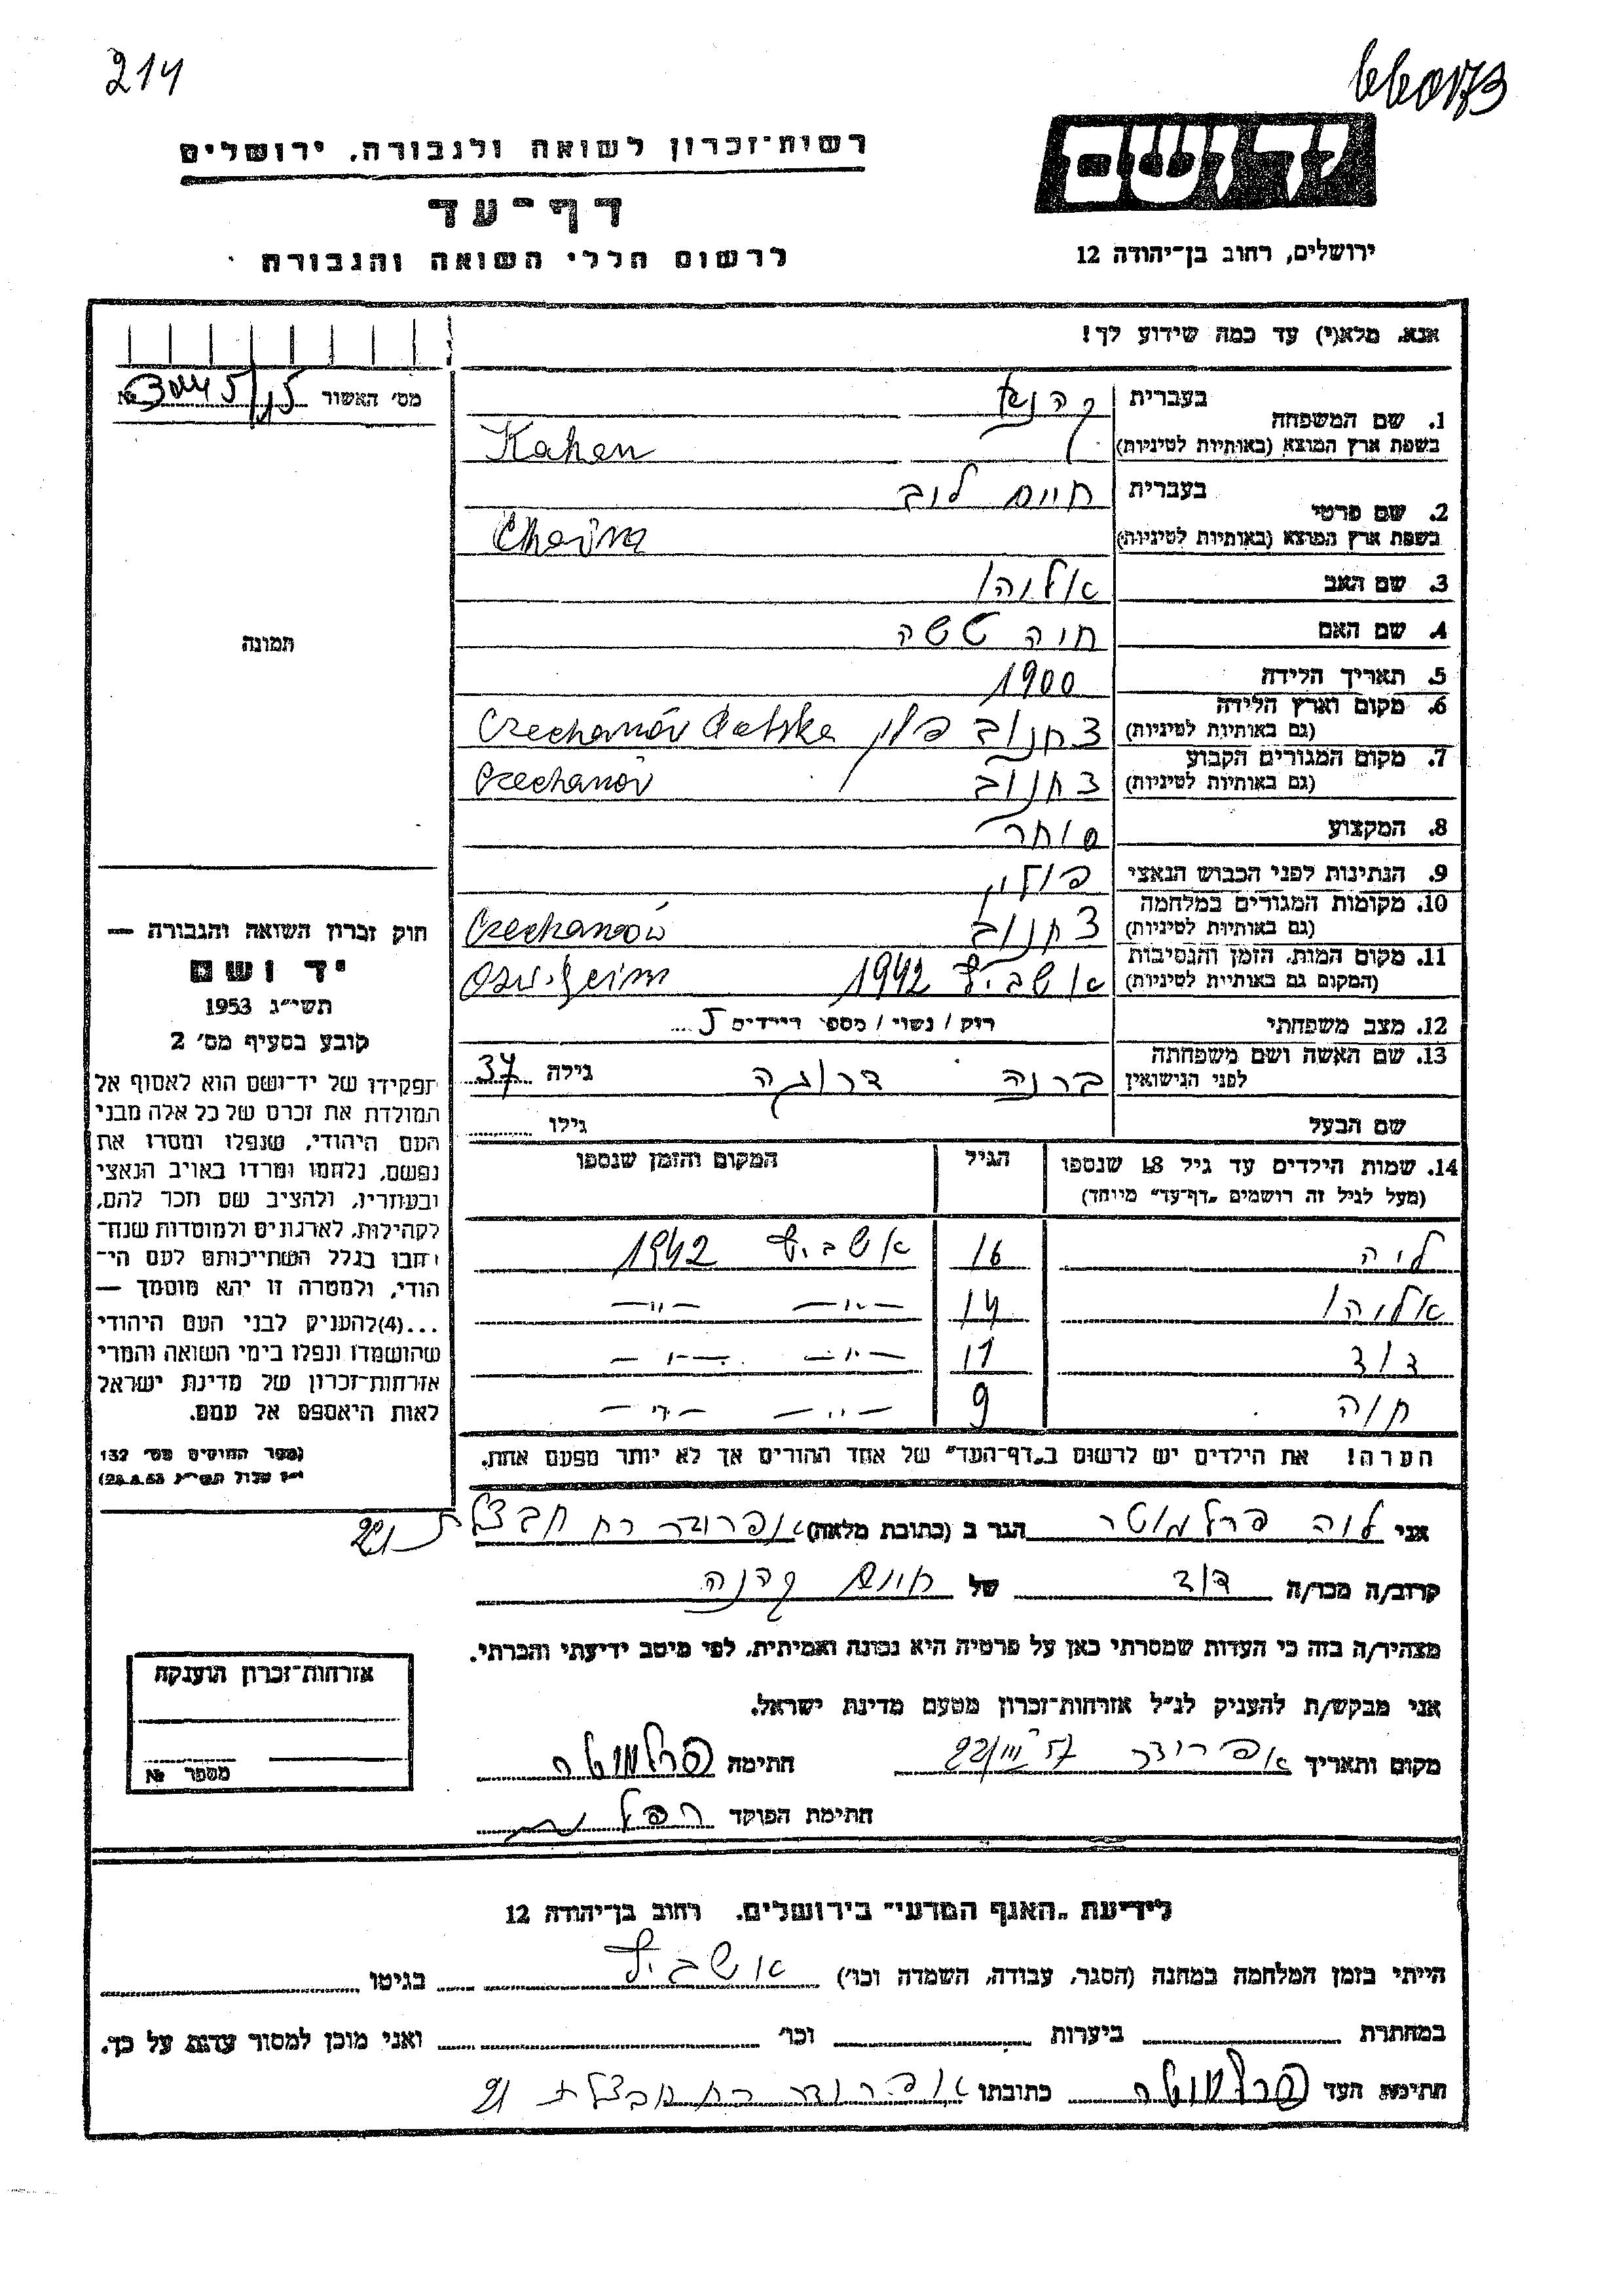 214
660173
רשות־זכרון לשואה ולגבורה, ירושלים
דף־עד
לרשום חללי השואה והגבורה
יד ושם
ירושלים, רחוב בן־יהודה 12
אנא, מלא(י) עד כמה שידוע לך!
מס' האשור
1. שם המשפחה
בעברית
בשפת ארץ המוצא (באותיות לטיניות) Kahen
2. שם פרטי
בעברית חיים לוב
בשפת ארץ המוצא (באותיות לטיניות) Chaim
3. שם האב אליהו
4. שם האם חיה
5. תאריך הלידה 1900
6. מקום וארץ הלידה
(גם באותיות לטיניות) צחנוב פולין Czechanóv
7. מקום המגורים הקבוע
(גם באותיות לטיניות) צחנוב Czechanóv
8. המקצוע סוחר
9. הנתינות לפני הכבוש הנאצי פולין
10. מקומות המגורים במלחמה
(גם באותיות לטיניות) צחנוב
11. מקום המות, הזמן והנסיבות
(המקום גם באותיות לטיניות) אשביץ 1942
12. מצב משפחתי רוק / נשוי / מספר הילדים 5
13. שם האשה ושם משפחתה
לפני הנישואין ברנה גילה 37
שם הבעל גילו
14. שמות הילדים עד גיל 18 שנספו
(מעל לגיל זה רושמים „דף־עד" מיוחד)
הגיל
המקום והזמן שנספו
ליה 16 אשביץ 1942
אליהו 14 —"— —"—
דוד 11 —"— —"—
חוה 9 —"— —"—
הערה! את הילדים יש לרשום ב„דף־העד" של אחד ההורים אך לא יותר מפעם אחת.
תמונה
חוק זכרון השואה והגבורה —
יד ושם
תשי"ג 1953
קובע בסעיף מס' 2
תפקידו של יד־ושם הוא לאסוף אל
המולדת את זכרם של כל אלה מבני
העם היהודי, שנפלו ומסרו את
נפשם, נלחמו ומרדו באויב הנאצי
ובעוזריו, ולהציב שם וזכר להם,
לקהילות, לארגונים ולמוסדות שנח־
רבו בגלל השתייכותם לעם הי־
הודי, ולמטרה זו יהא מוסמך —
...(4)להעניק לבני העם היהודי
שהושמדו ונפלו בימי השואה והמרי
אזרחות־זכרון של מדינת ישראל
לאות היאספם אל עמם.
(ספר החוקים מס' 132
אני פרלמוטר הגר ב (כתובת מלאה) רח חבצלת 21
קרוב/ה מכר/ה דוד של חיים קהנה
מצהיר/ה בזה כי העדות שמסרתי כאן על פרטיה היא נכונה ואמיתית, לפי מיטב ידיעתי והכרתי.
אני מבקש/ת להעניק לנ"ל אזרחות־זכרון מטעם מדינת ישראל.
מקום ותאריך 22/III 57 חתימה פרלמוטר
חתימת הפוקד
אזרחות־זכרון הוענקה
מספר №
לידיעת „האגף המדעי" בירושלים, רחוב בן־יהודה 12
הייתי בזמן המלחמה במחנה (הסגר, עבודה, השמדה וכו') אשביץ בגיטו
במחתרת ביערות וכו' ואני מוכן למסור עדות על כך.
חתימת העד פרלמוטר כתובתו רח חבצלת 21